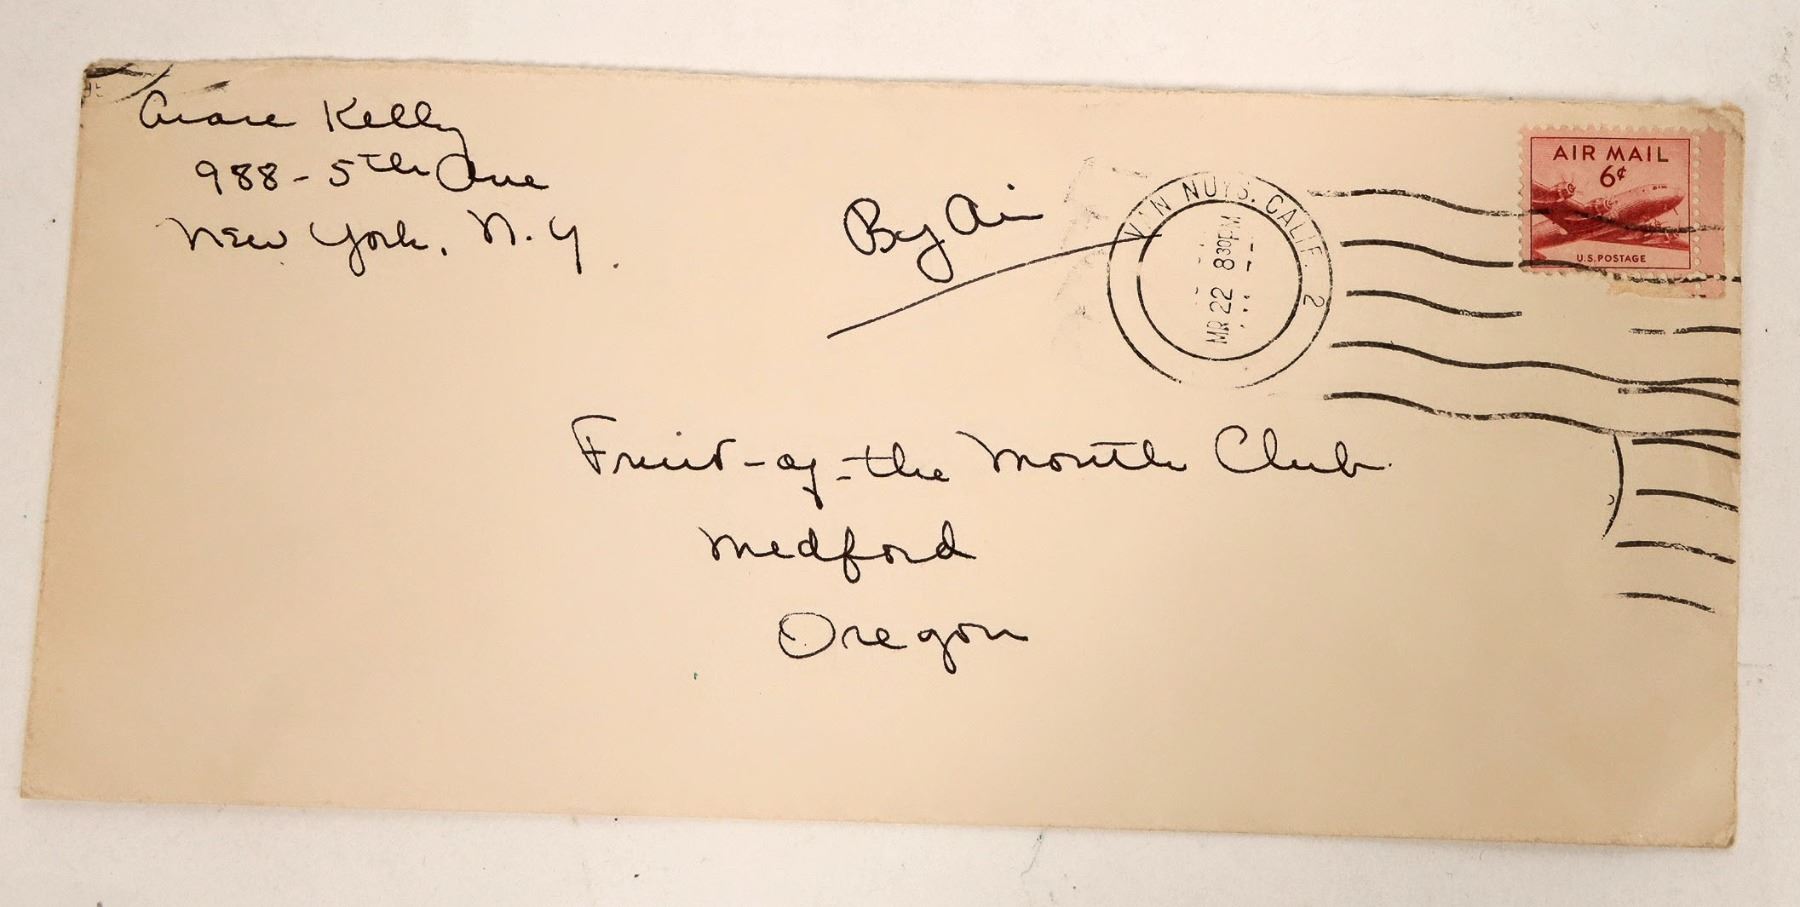 Grace Kelly
988 - 5th Ave
New York, N.Y.
By Air
VAN NUYS. CALIF. 2
MR 22 8 30 PM
AIR MAIL
6¢
U.S. POSTAGE
Fruit-of-the Month Club
Medford
Oregon